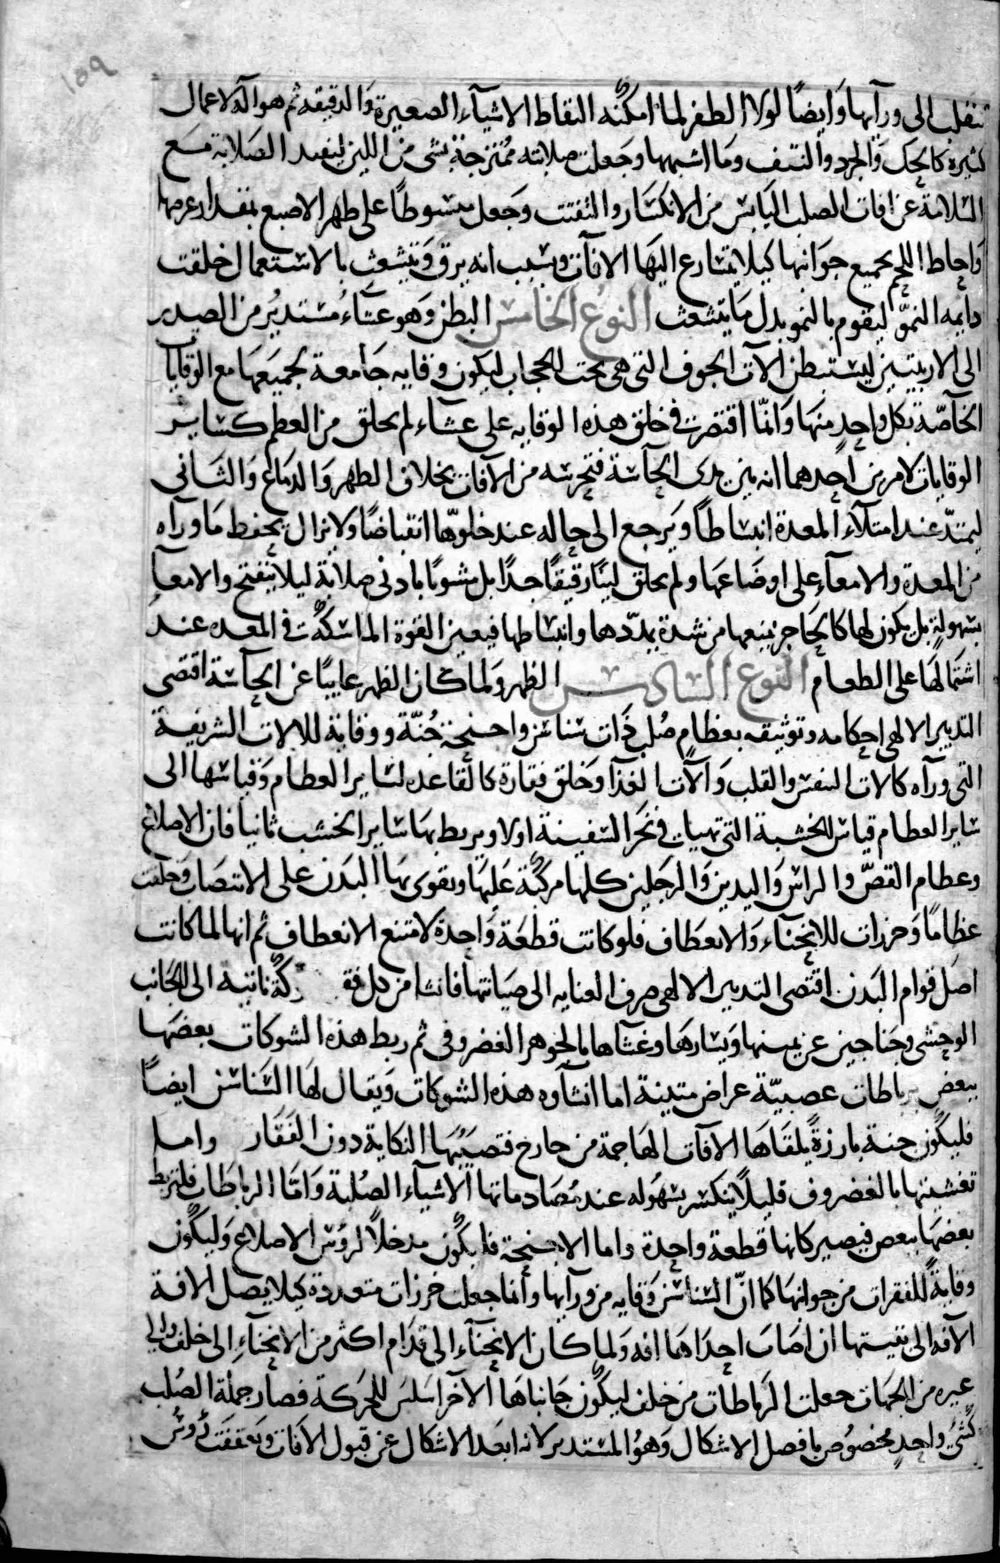 ١٥٩
تنقلب الى ورآىها وَايضًا لولا الظفر لما امكنه التقاط الاشيآء الصغيرة وَالدقيقه ثم هو اله لاعمال
كثيره كالحك وَالجرد والنتف وما اشبهها وجعلت صلابته ممُتزجة بشى من اللين ليفيد الصَلابة مع
السلامة عن افات الصلب اليَابس من الانكسَار والتفتت وَجعل مبسُوطًا على ظهر الاصبع بمقدار عرضها
وَاحاط اللحم بجميع جوَانبها كيلا يتسَارع اليهَا الافات وبسَبب انه يرق وَيتشعث بالاستعمال خلقت
دايمه النموّ ليقوم بالنمو بدل مَا يتشعث النوع الخامس البطن وَهو غشاءُ مُستديرُ من الصدر
الى الاربيتين ليستبطن الآت الجوف التى هى تحت الحجاب ليكون وقايه جَامعة لجميعهَا مع الوقايا
الخاصّة بكل وَاحدٍ منهَا وَانّما اقتصرت فى خلق هذه الوقايه على غشاء لم يخلق من العظم كسَاير
الوقايات لامرين احَدهما انه بين يدى الحآسَة فتحرسُه من الافات بخلاف الظهر وَالدمَاغ وَالثانى
ليمتدّ عند امتلآء المعدة انبسَاطاً وَيرجع الى حاله عند خلوّها انقباضًا ولا يزال يحفظ مَا ورآه
من المعدة والامعآء على اوضَاعهَا ولم يخلق لينًا رقيقًا جدًا بل مشوبًا بادنى صلابة ليلا يتفتح والامعآ
بسُهولةٍ بل يكون لهَا كالحَاجز يمنعها من شدة تمدّدها وانبسَاطها فيعين القوة الماسكة فى المعده عند
اشتمَالهَا على الطعَام النوع السَادس الظهر وَلما كان الظهر غايبًا عن الحآسّة اقتضى
التدبير الالهى احكامه وتوثيقه بعظام صُلب ذَات سَناسن واجنحة جُنّة ووقاية للالات الشريفة
التى ورآه كالات النفس والقلب وَالآت الغذآ وَخلق فقارة كالقاعده لسَاير العظام وَقياسهَا الى
سَاير العظام قياس الخشبة التى تهيات فى نجر السَفينة اولا ويربط بهَا سَاير الخشب ثانيا فان الاضلاع
وعظام القصّ والراس وَاليدين وَالرجلين كلهَا مركبة عليهَا ويقوى بهَا البَدن على الانتصَاب وَخلقت
عظامًا وَخرزات للانحنآء وَالانعطاف فلو كانت قطعَة وَاحدة لامتنع الانعطاف ثم انها لما كانت
اصل قوام البَدن اقتضى التدبير الالهى صرف العنايه الى صيَانتهَا فانشا من كل فقرة ناتئه الى الجانب
الوحشى وجَناحين عن يمينها ويسَارهَا وغشاها بالجوهر الغضروفى ثم ربط هذه الشوكات بعضهَا
ببعض برباطات عصبيّة عراض متينة اما انشآوه هذه الشوكات وَيقال لهَا السَناسن ايضًا
فليكون جنة بارزةً يلقاهَا الافات الهَاجمة من خارج فتصيبُهَا النكاية دون الفَقار واما
تغشيتها بالغضروف فليلا ينكسر بسُهوله عند مُصَادماتها الاشيآء الصُلبة وَامّا الربَاطات فلتربط
بعضهَا ببعض فيصير كانهَا قطعة واحدة واما الاجنحة فليكون مدخلًا لرؤس الاضلاع وَليكون
وقايةً للفقرات من جوانبهَا كما انّ السَناسن وَقايه من ورآىها وانما جعلت خرزات متعددة كيلا يصل الافة
الآفه الى بقيتها ان اصَاب احدَاهَا افه وَلما كان الانحنآء الى قدَام اكثر من الانحنآء الى خلف والى
غيره من الجهَات جعلت الربَاطات من خلف ليكون جَانباها الآخر اسَلسَ للحركة فصَار جملة الصُلب
كشئ واحدٍ مخصُوص بافضل الاشكال وَهو المستدير لانه ابعَد الاشكال عن قبول الافات وتعقفت رءوس